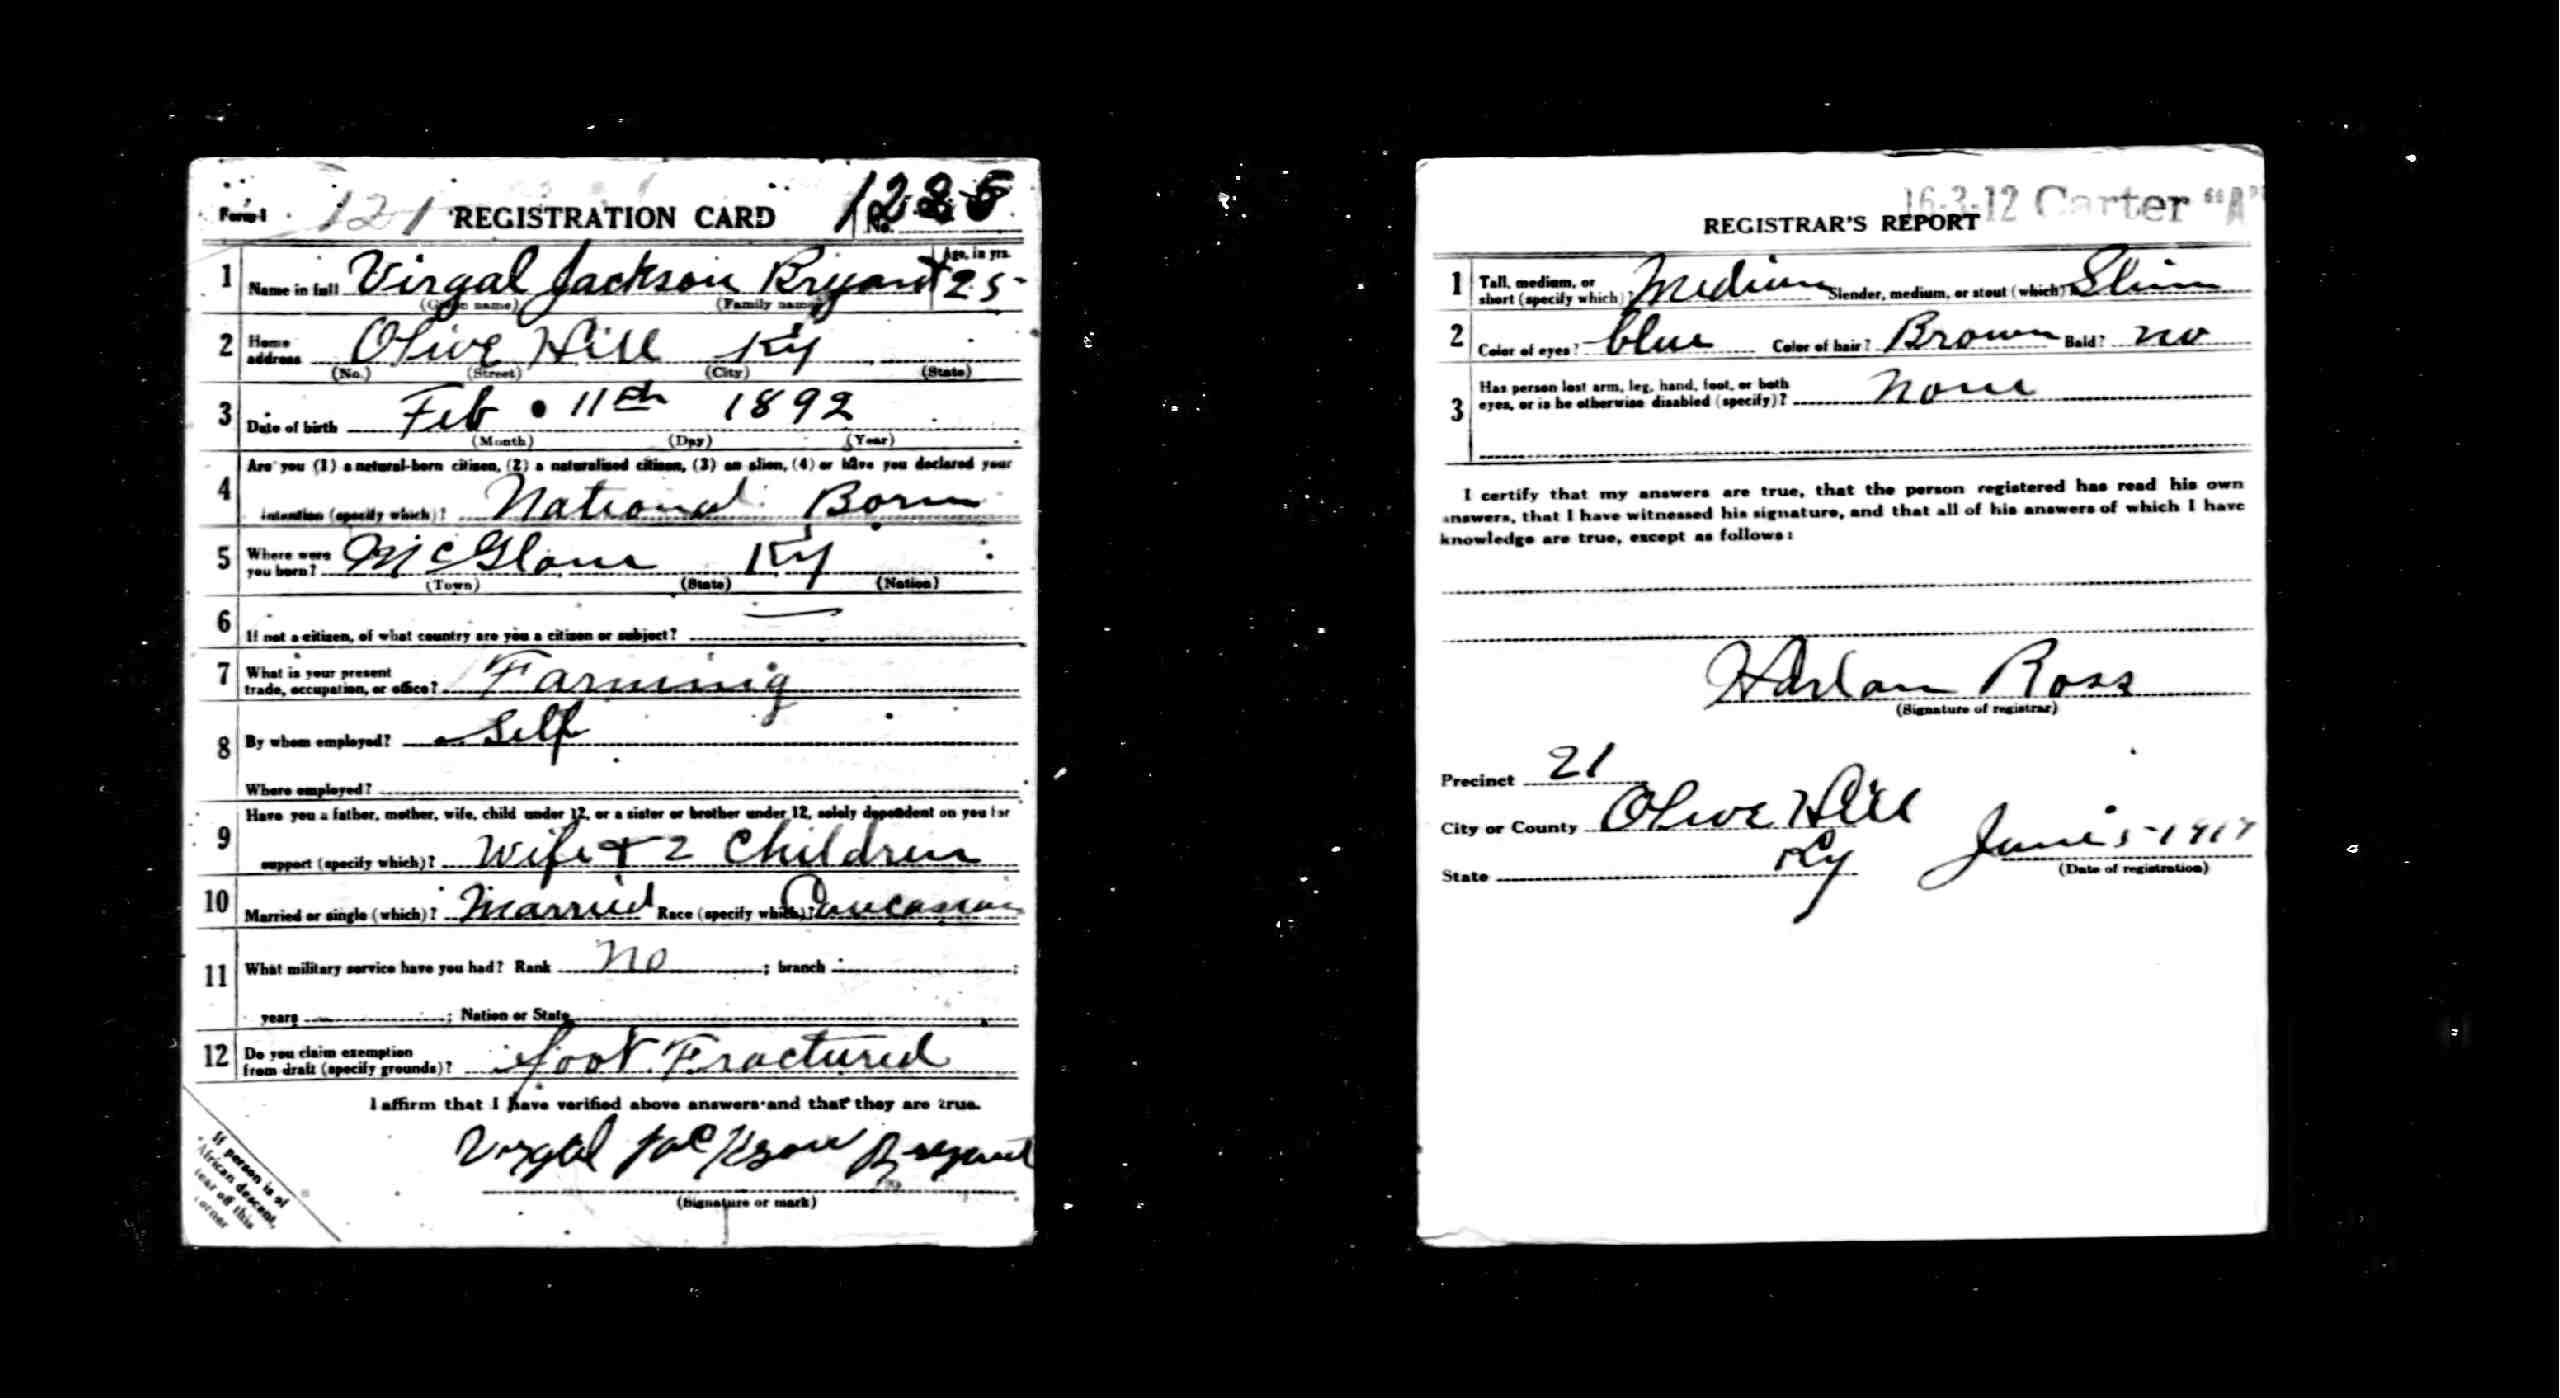 Form 1 121 REGISTRATION CARD No. 1285
1 Name in full Virgal Jackson Bryant Age, in yrs. 25
(Given name) (Family name)
2 Home address Olive Hill Ky
(No.) (Street) (City) (State)
3 Date of birth Feb 11th 1892
(Month) (Day) (Year)
4 Are you (1) a natural-born citizen, (2) a naturalized citizen, (3) an alien, (4) or have you declared your
intention (specify which)? National Born
5 Where were you born? McGlone Ky
(Town) (State) (Nation)
6 If not a citizen, of what country are you a citizen or subject? —
7 What is your present trade, occupation, or office? Farming
8 By whom employed? Self
Where employed?
9 Have you a father, mother, wife, child under 12, or a sister or brother under 12, solely dependent on you for
support (specify which)? Wife + 2 Children
10 Married or single (which)? Married Race (specify which)? Caucasian
11 What military service have you had? Rank no ; branch ;
years ; Nation or State
12 Do you claim exemption from draft (specify grounds)? foot Fractured
I affirm that I have verified above answers and that they are true.
Virgal Jackson Bryant
(Signature or mark)
If person is of
African descent,
tear off this
corner
16-3-12 Carter "A"
REGISTRAR'S REPORT
1 Tall, medium, or short (specify which)? Medium Slender, medium, or stout (which)? Slim
2 Color of eyes? blue Color of hair? Brown Bald? no
3 Has person lost arm, leg, hand, foot, or both
eyes, or is he otherwise disabled (specify)? none
I certify that my answers are true, that the person registered has read his own
answers, that I have witnessed his signature, and that all of his answers of which I have
knowledge are true, except as follows:
Harlan Ross
(Signature of registrar)
Precinct 21
City or County Olive Hill
State Ky June 5-1917
(Date of registration)